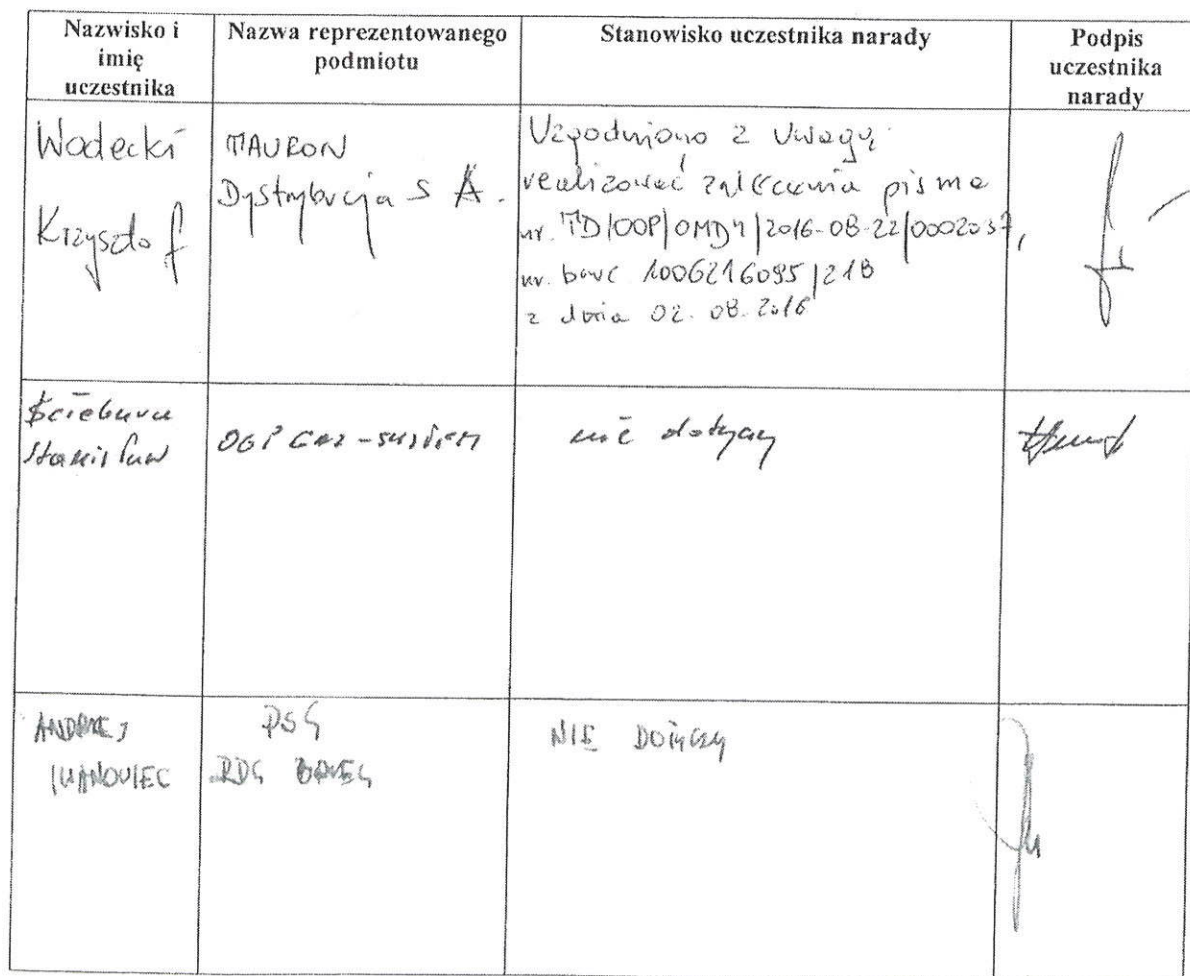 Nazwisko i
imię
uczestnika
Nazwa reprezentowanego
podmiotu
Stanowisko uczestnika narady
Podpis
uczestnika
narady
Wodecki
Krzysztof
TAURON
Dystrybucja S A.
Uzgodniono z uwagą:
realizować zalecenia pisma
nr. TD/OOP/OMD4/2016-08-22/0002037,
nr. barc 1006216095/21B
z dnia 02.08.2016
Stanisław
OGP GAZ-SYSTEM
nie dotyczy
ANDRZEJ
IWANOWIEC
PSG
RDG
NIE DOTYCZY